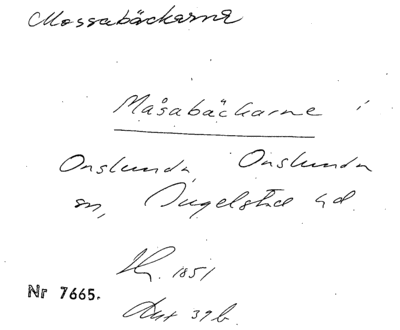 Mossabäckarne
Måsabäckarne i
Onslunda, Onslunda
sn, Ingelstad hd.
1851
Nr 7665.
39 b.